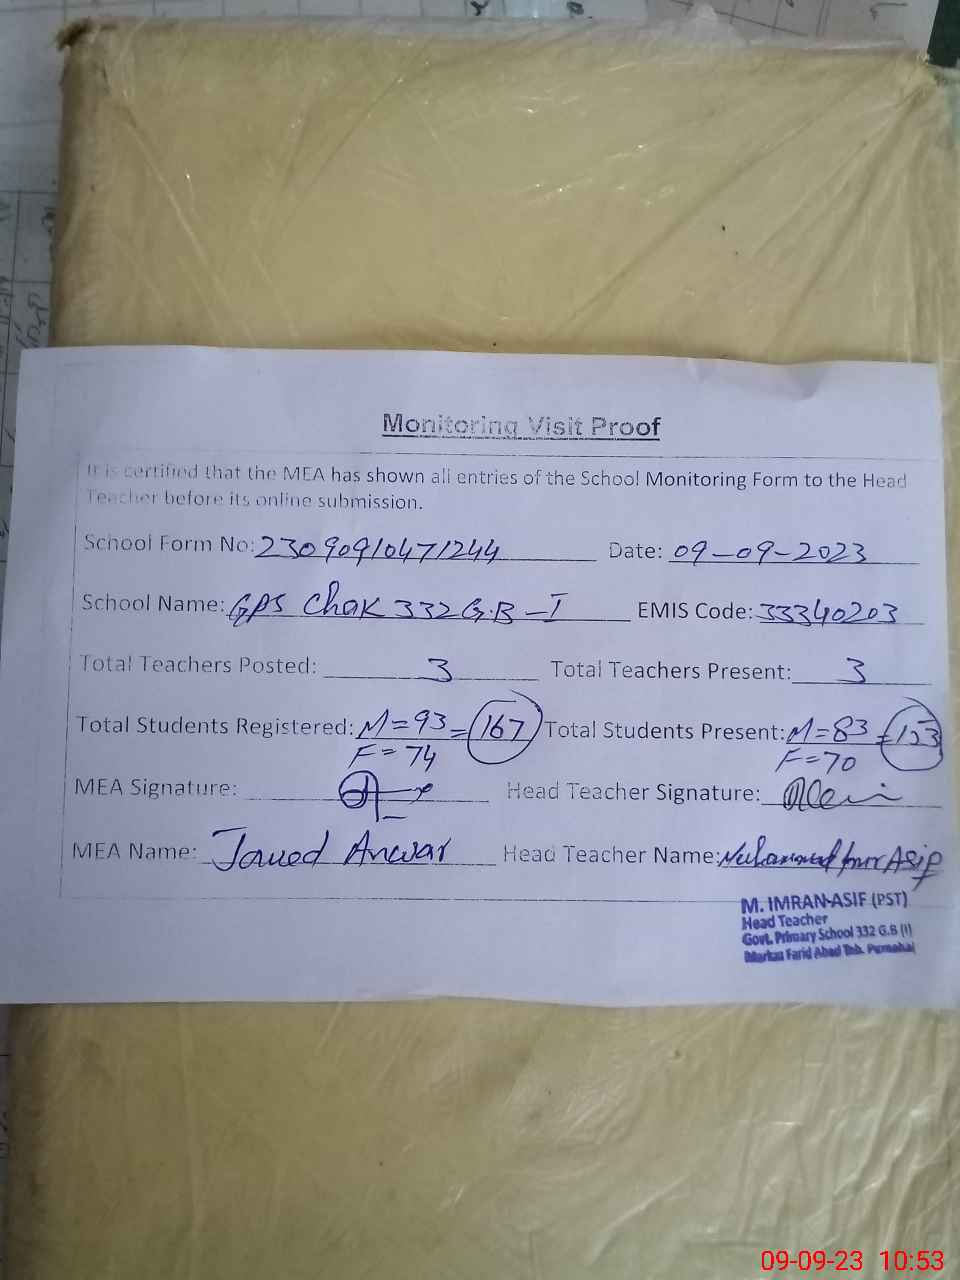 Monitoring Visit Proof
It is certified that the MEA has shown all entries of the School Monitoring Form to the Head
Teacher before its online submission.
School Form No: 23090910471244 Date: 09-09-2023
School Name: GPS Chak 332 G.B-I EMIS Code: 33340203
Total Teachers Posted: 3 Total Teachers Present: 3
Total Students Registered: M=93 = 167 Total Students Present: M=83 = 153
F=74 F=70
MEA Signature: Head Teacher Signature:
MEA Name: Javed Anwar Head Teacher Name: Muhammad Imran Asif
M. IMRAN ASIF (PST)
Head Teacher
Govt. Primary School 332 G.B (I)
Markaz Farid Abad Teh. Pirmahal
09-09-23 10:53